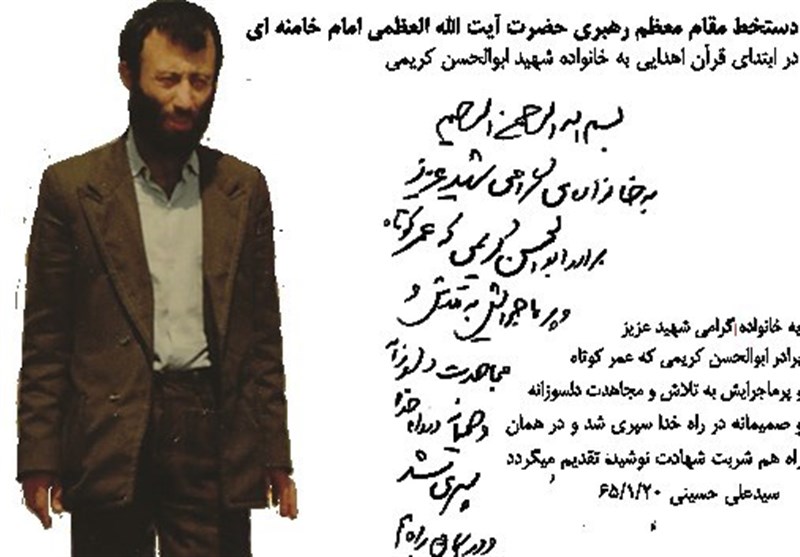 دستخط مقام معظم رهبری حضرت آیت الله العظمی امام خامنه ای
در ابتدای قرآن اهدایی به خانواده شهید ابوالحسن کریمی
بسم الله الرحمن الرحیم
به خانواده‌ی گرامی شهید عزیز
برادر ابوالحسن کریمی که عمر کوتاه
و پر ماجرایش به تلاش و
مجاهدت دلسوزانه
و صمیمانه در راه خدا
سپری شد
و در همان راه هم
به خانواده گرامی شهید عزیز
برادر ابوالحسن کریمی که عمر کوتاه
و پرماجرایش به تلاش و مجاهدت دلسوزانه
و صمیمانه در راه خدا سپری شد و در همان
راه هم شربت شهادت نوشید، تقدیم میگردد
سیدعلی حسینی ۶۵/۱/۲۰